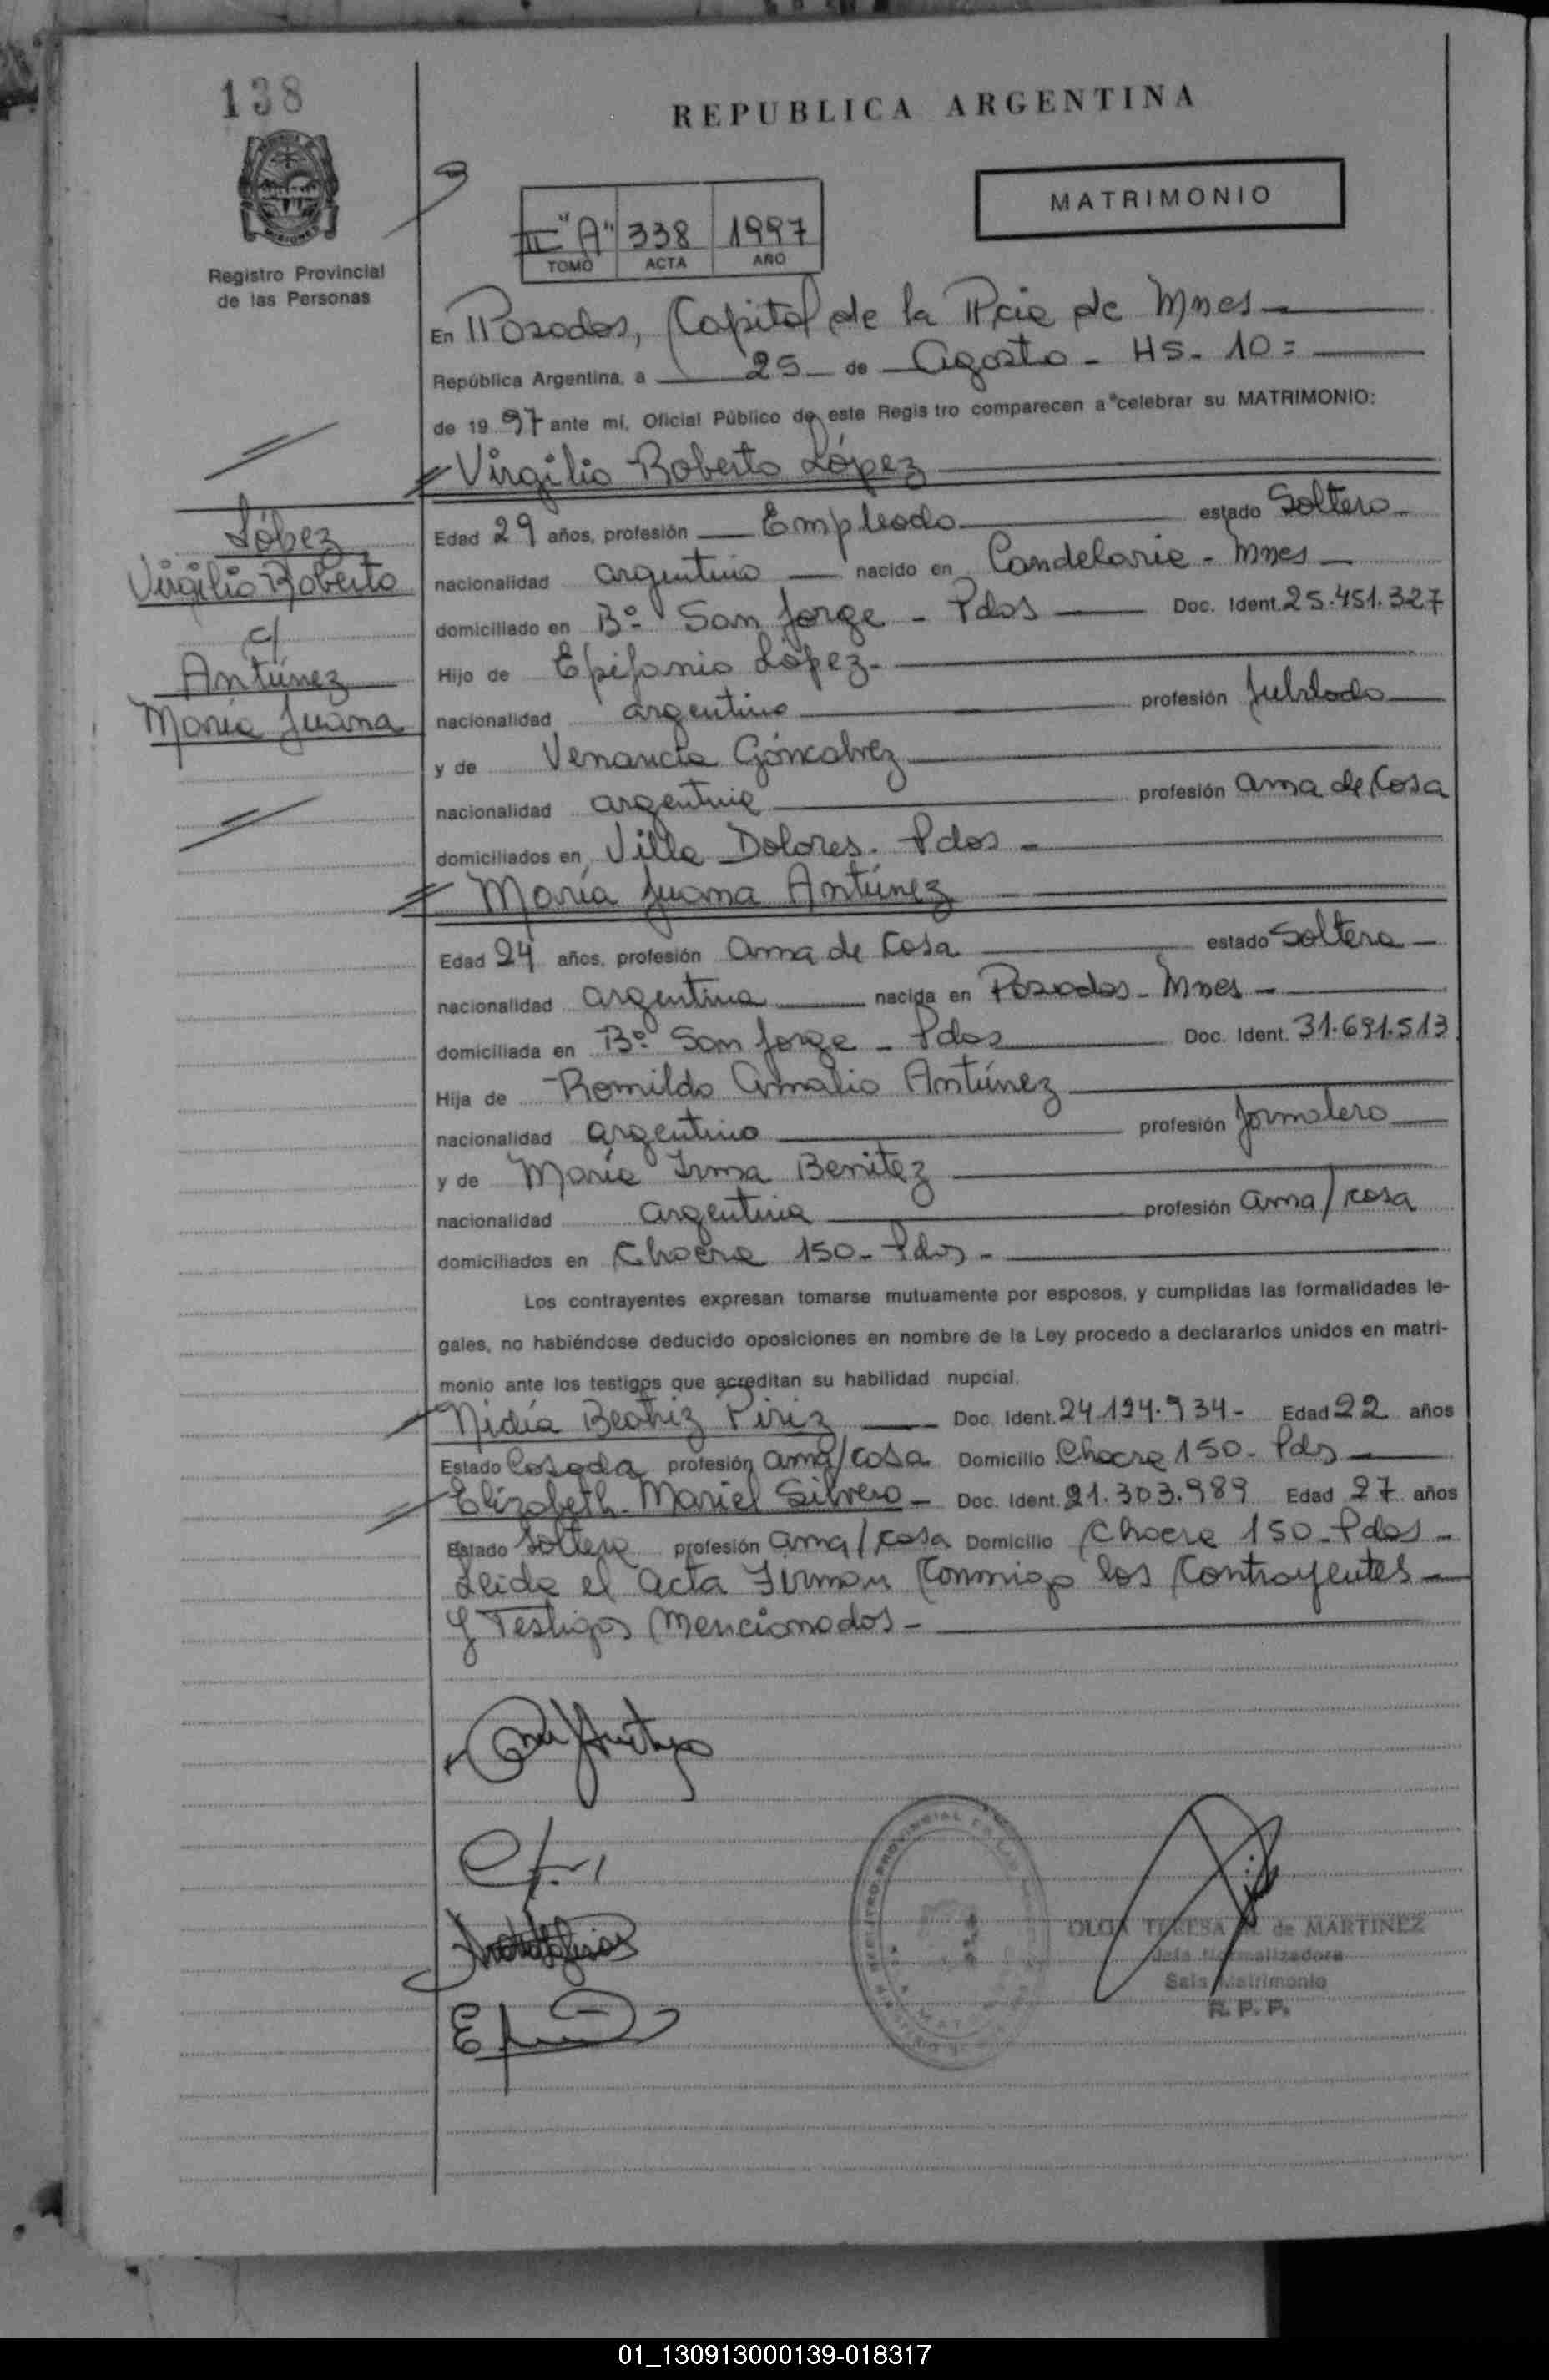 138
REPUBLICA ARGENTINA
MATRIMONIO
MISIONES
Registro Provincial
de las Personas
II "A" 338 1997
TOMO ACTA AÑO
En Posadas, Capital de la Pcia de Mnes
República Argentina, a 25 de Agosto - Hs. 10 =
de 1997 ante mí, Oficial Público de este Registro comparecen a celebrar su MATRIMONIO:
Virgilio Roberto López
López
Virgilio Roberto
c/
Antúnez
María Juana
Edad 29 años, profesión Empleado estado Soltero
nacionalidad argentino nacido en Candelaria - Mnes
domiciliado en B° San Jorge - Pdas Doc. Ident. 25.451.327
Hijo de Epifanio López
nacionalidad argentino profesión Jubilado
y de Venancia Góncalvez
nacionalidad argentina profesión ama de Casa
domiciliados en Villa Dolores. Pdas
María Juana Antúnez
Edad 24 años, profesión Ama de Casa estado Soltera
nacionalidad argentina nacida en Posadas - Mnes
domiciliada en B° San Jorge - Pdas Doc. Ident. 31.691.513
Hija de Romildo Amalio Antúnez
nacionalidad argentino profesión Jornalero
y de María Irma Benitez
nacionalidad argentina profesión ama/casa
domiciliados en Chacra 150 - Pdas
Los contrayentes expresan tomarse mutuamente por esposos, y cumplidas las formalidades le-
gales, no habiéndose deducido oposiciones en nombre de la Ley procedo a declararlos unidos en matri-
monio ante los testigos que acreditan su habilidad nupcial.
Nidia Beatriz Piriz Doc. Ident. 24.194.934 - Edad 22 años
Estado Casada profesión ama/casa Domicilio Chacra 150 - Pdas
Elizabeth Mariel Silvero Doc. Ident. 21.303.989 Edad 27 años
Estado Soltera profesión ama/casa Domicilio Chacra 150 - Pdas
Leida el acta Firman Conmigo los Contrayentes
y Testigos Mencionados
OLGA TERESA de MARTINEZ
Jefa Normalizadora
Sala Matrimonio
R. P. P.
01_130913000139-018317